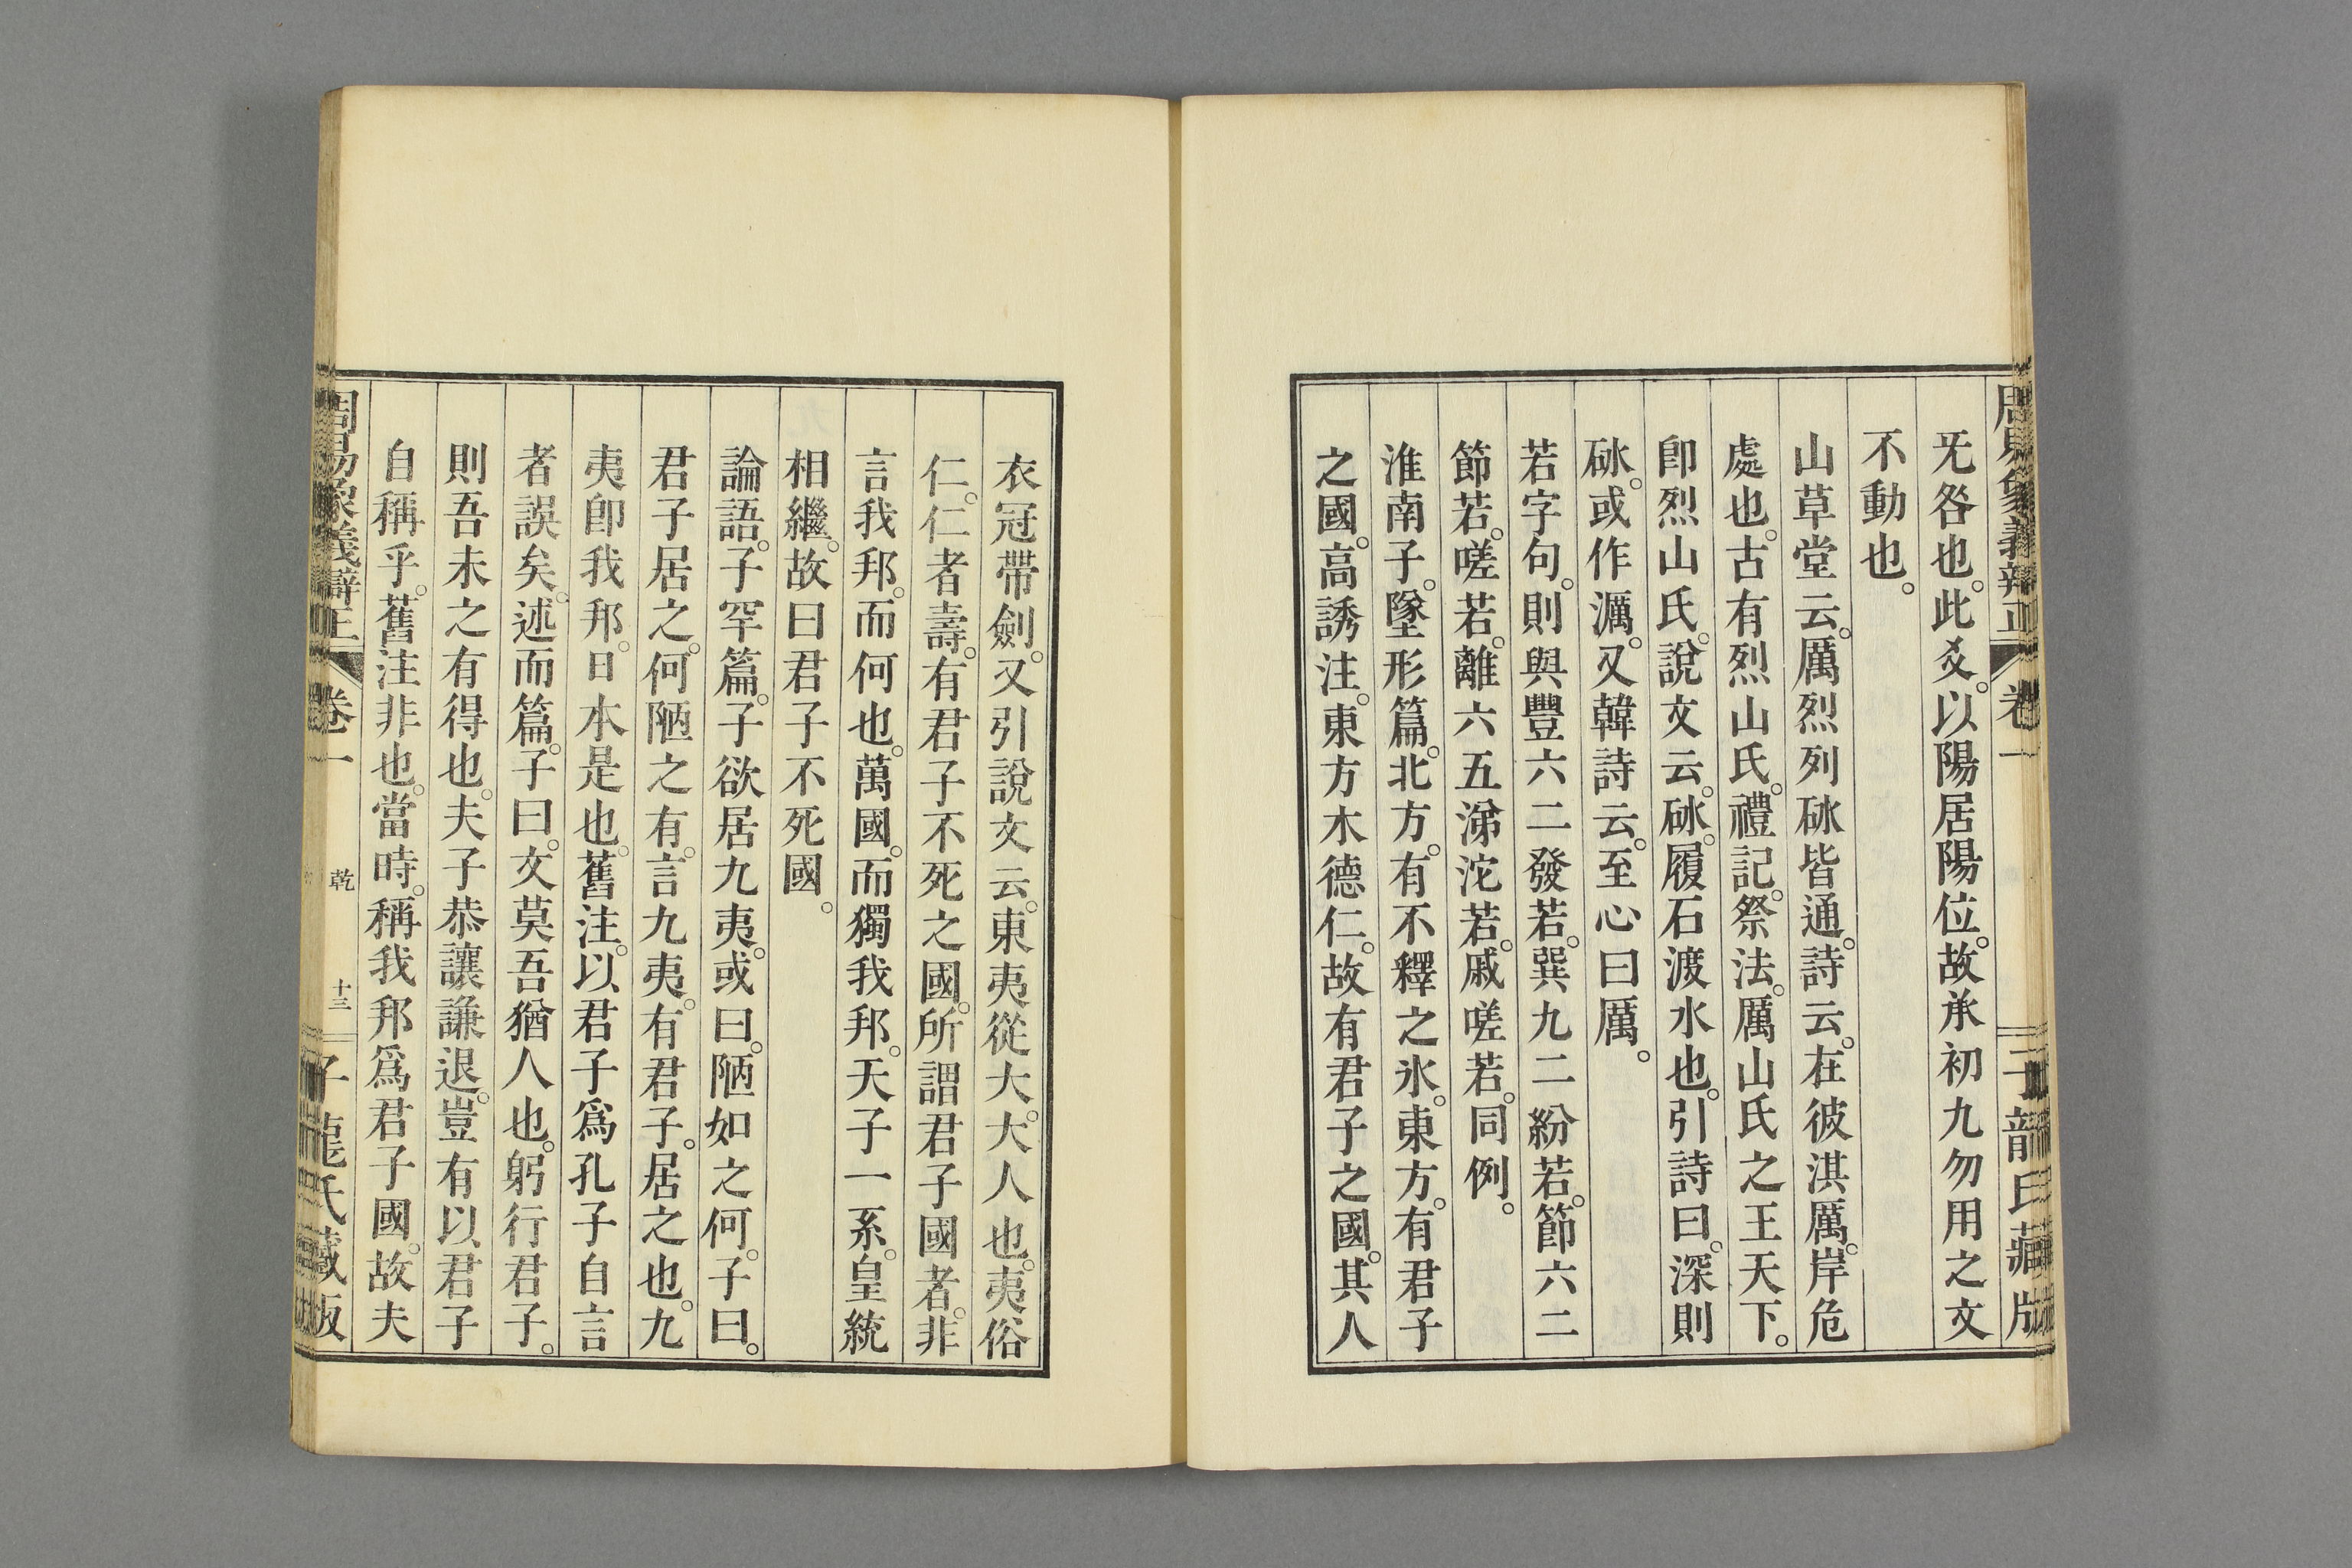 周易象義辯正 卷一 子龍氏藏版
旡咎也。此爻。以陽居陽位。故承初九勿用之文
不動也。
山草堂云。厲烈列砅皆通。詩云。在彼淇厲。岸危
處也。古有烈山氏。禮記。祭法。厲山氏之王天下。
卽烈山氏。說文云。砅。履石渡水也。引詩曰。深則
砅。或作濿。又韓詩云。至心曰厲。
若字句。則與豐六二發若。巽九二紛若。節六二
節若。嗟若。離六五涕沱若。戚嗟若。同例。
淮南子。墬形篇。北方。有不釋之氷。東方。有君子
之國。高誘注。東方木德仁。故有君子之國。其人
衣冠帶劍。又引說文云。東夷從大。大人也。夷俗
仁。仁者壽。有君子不死之國。所謂君子國者。非
言我邦。而何也。萬國。而獨我邦。天子一系。皇統
相繼。故曰君子不死國。
論語。子罕篇。子欲居九夷。或曰。陋如之何。子曰。
君子居之。何陋之有。言九夷。有君子。居之也。九
夷卽我邦。日本是也。舊注。以君子爲孔子自言
者誤矣。述而篇。子曰。文莫吾猶人也。躬行君子。
則吾未之有得也。夫子恭讓謙退。豈有以君子
自稱乎。舊注非也。當時。稱我邦爲君子國。故夫
周易象義辯正 卷一 乾 十三 子龍氏藏版